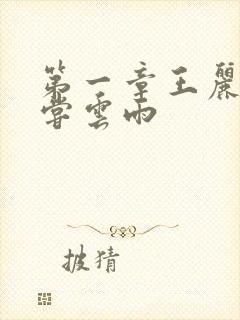 第一章王麗
嘗雲雨
披猜